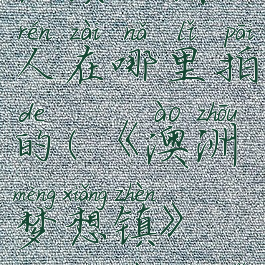 rén zài nǎ lǐ pāi
人在哪里拍
de ào zhōu
的(《澳洲
mèng xiǎng zhèn
梦想镇》